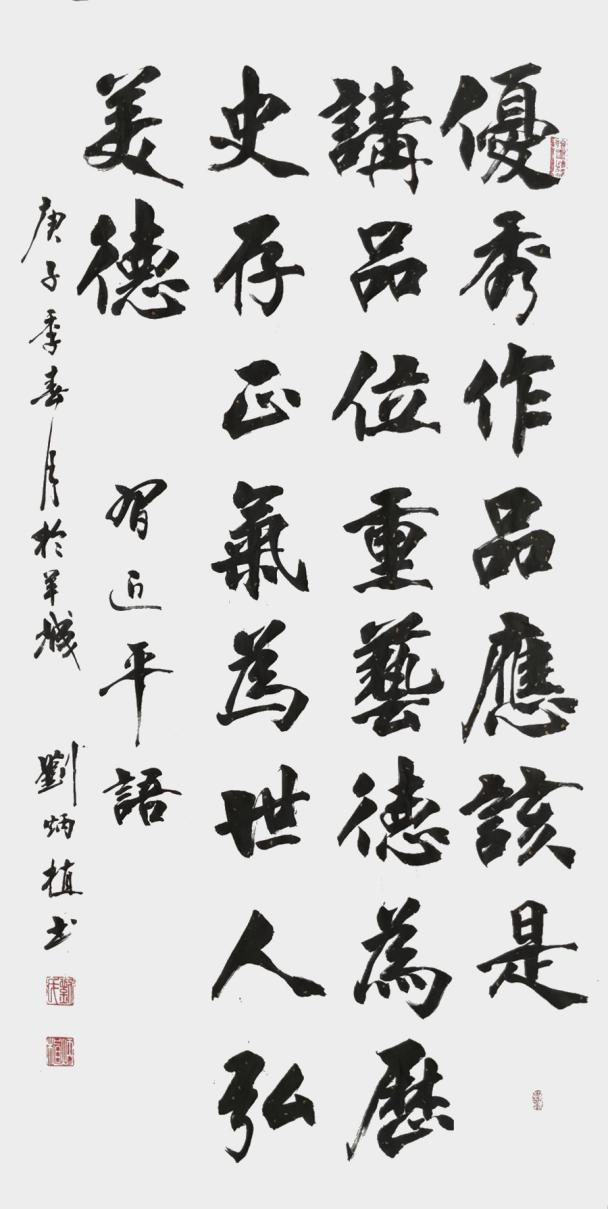 優秀作品應該是
講品位重藝德為歷
史存正氣為世人弘
美德
習近平語
庚子季春月於羊城
劉炳植書